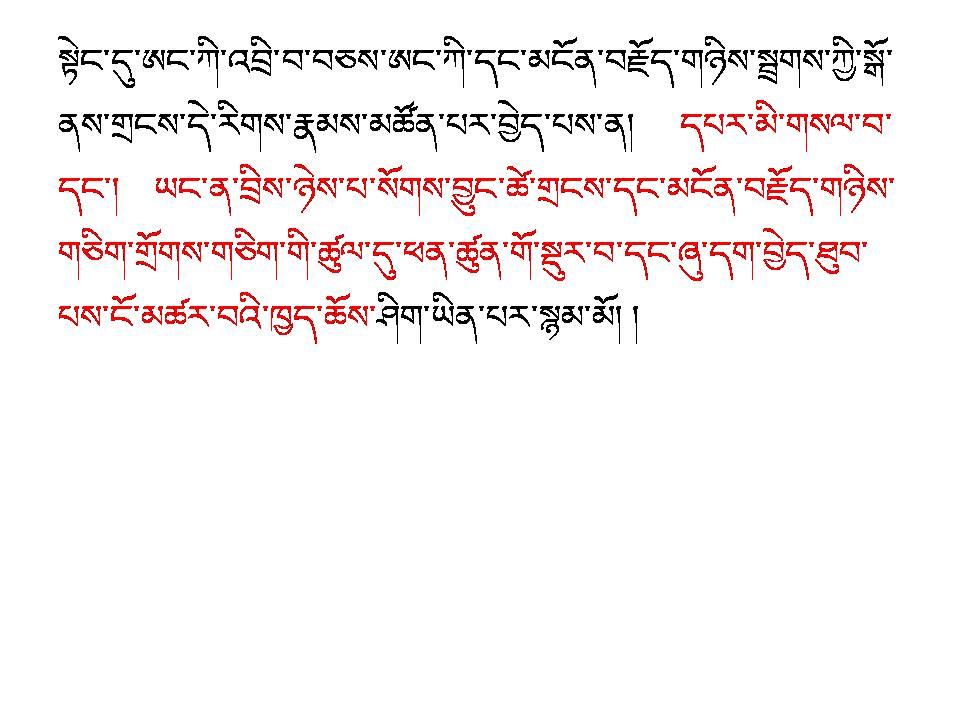 སྟེང་དུ་ཨང་ཀི་འབྲི་བ་བཅས་ཨང་ཀི་དང་མངོན་བརྗོད་གཉིས་སྦྲགས་ཀྱི་སྒོ་
ནས་གྲངས་དེ་རིགས་རྣམས་མཚོན་པར་བྱེད་པས་ན། དཔར་མི་གསལ་བ་
དང་། ཡང་ན་བྲིས་ཉེས་པ་སོགས་བྱུང་ཚེ་གྲངས་དང་མངོན་བརྗོད་གཉིས་
གཅིག་གྲོགས་གཅིག་གི་ཚུལ་དུ་ཕན་ཚུན་གོ་སྡུར་བ་དང་ཞུ་དག་བྱེད་ཐུབ་
པས་ངོ་མཚར་བའི་ཁྱད་ཆོས་ཤིག་ཡིན་པར་སྙམ་མོ། །